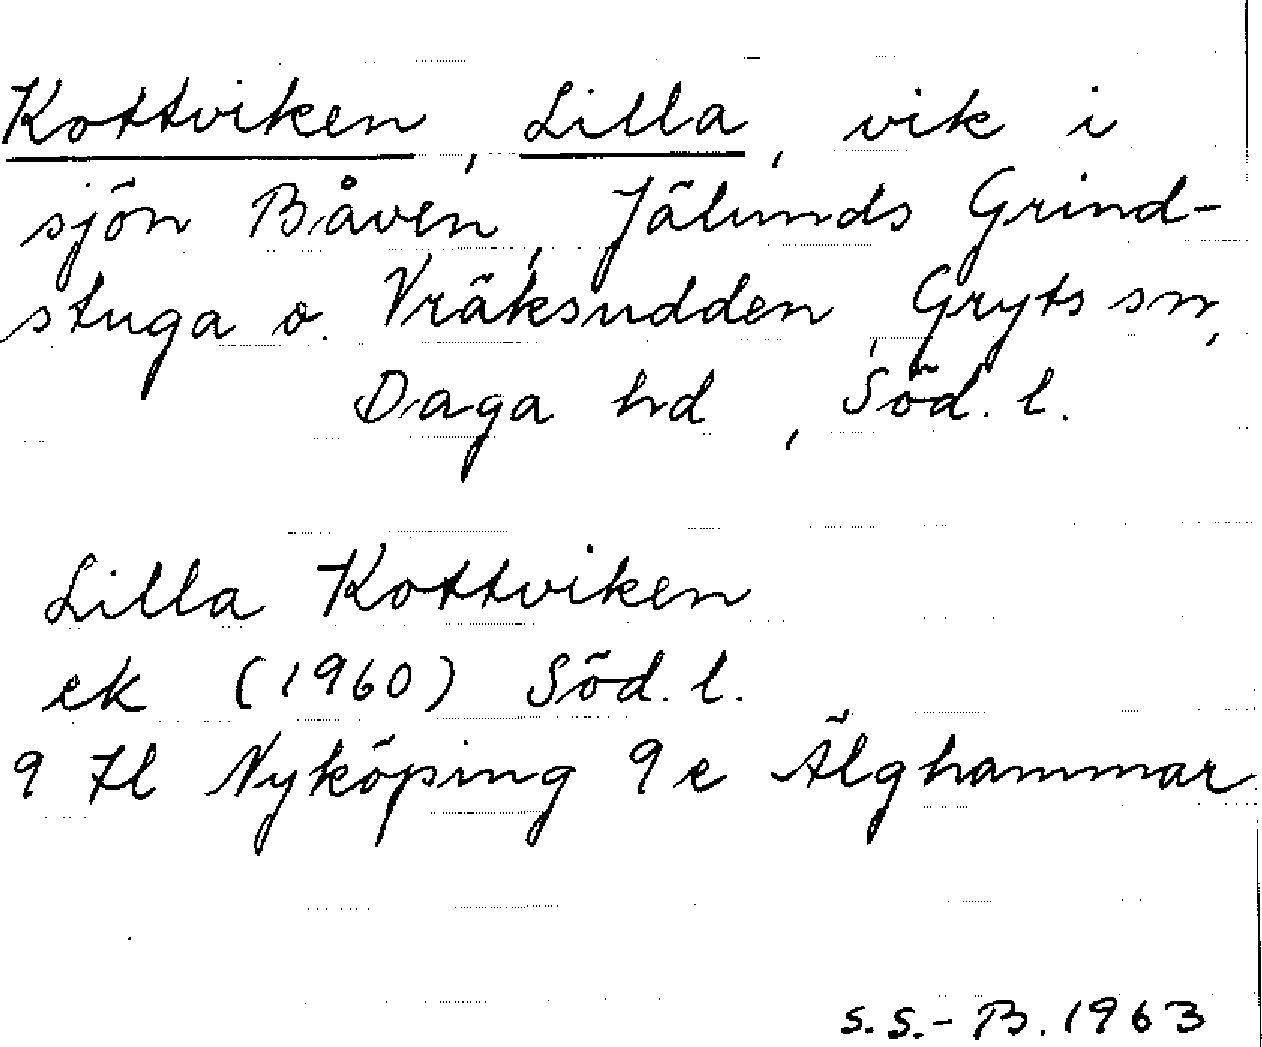 Kottviken, Lilla, vik i
sjön Båven, Jälunds Grind-
stuga o. Vräksudden, Gryts sn,
Daga hd, Söd. l.
Lilla Kottviken
ek (1960) Söd. l.
9 H Nyköping 9 e Älghammar
S.S.-B. 1963